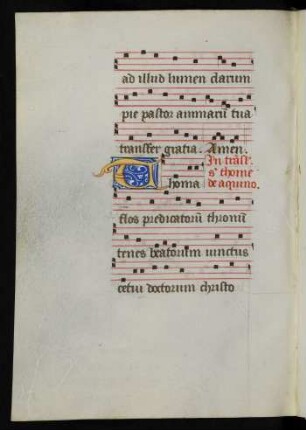 ad illud lumen clarum
pie pastor animarū tua
transfer gratia. Amen.
In trāsl'
Thoma
s' thome
de aquino.
flos predicatorū thronū
tenes beatorum uinctus
cetui doctorum christo